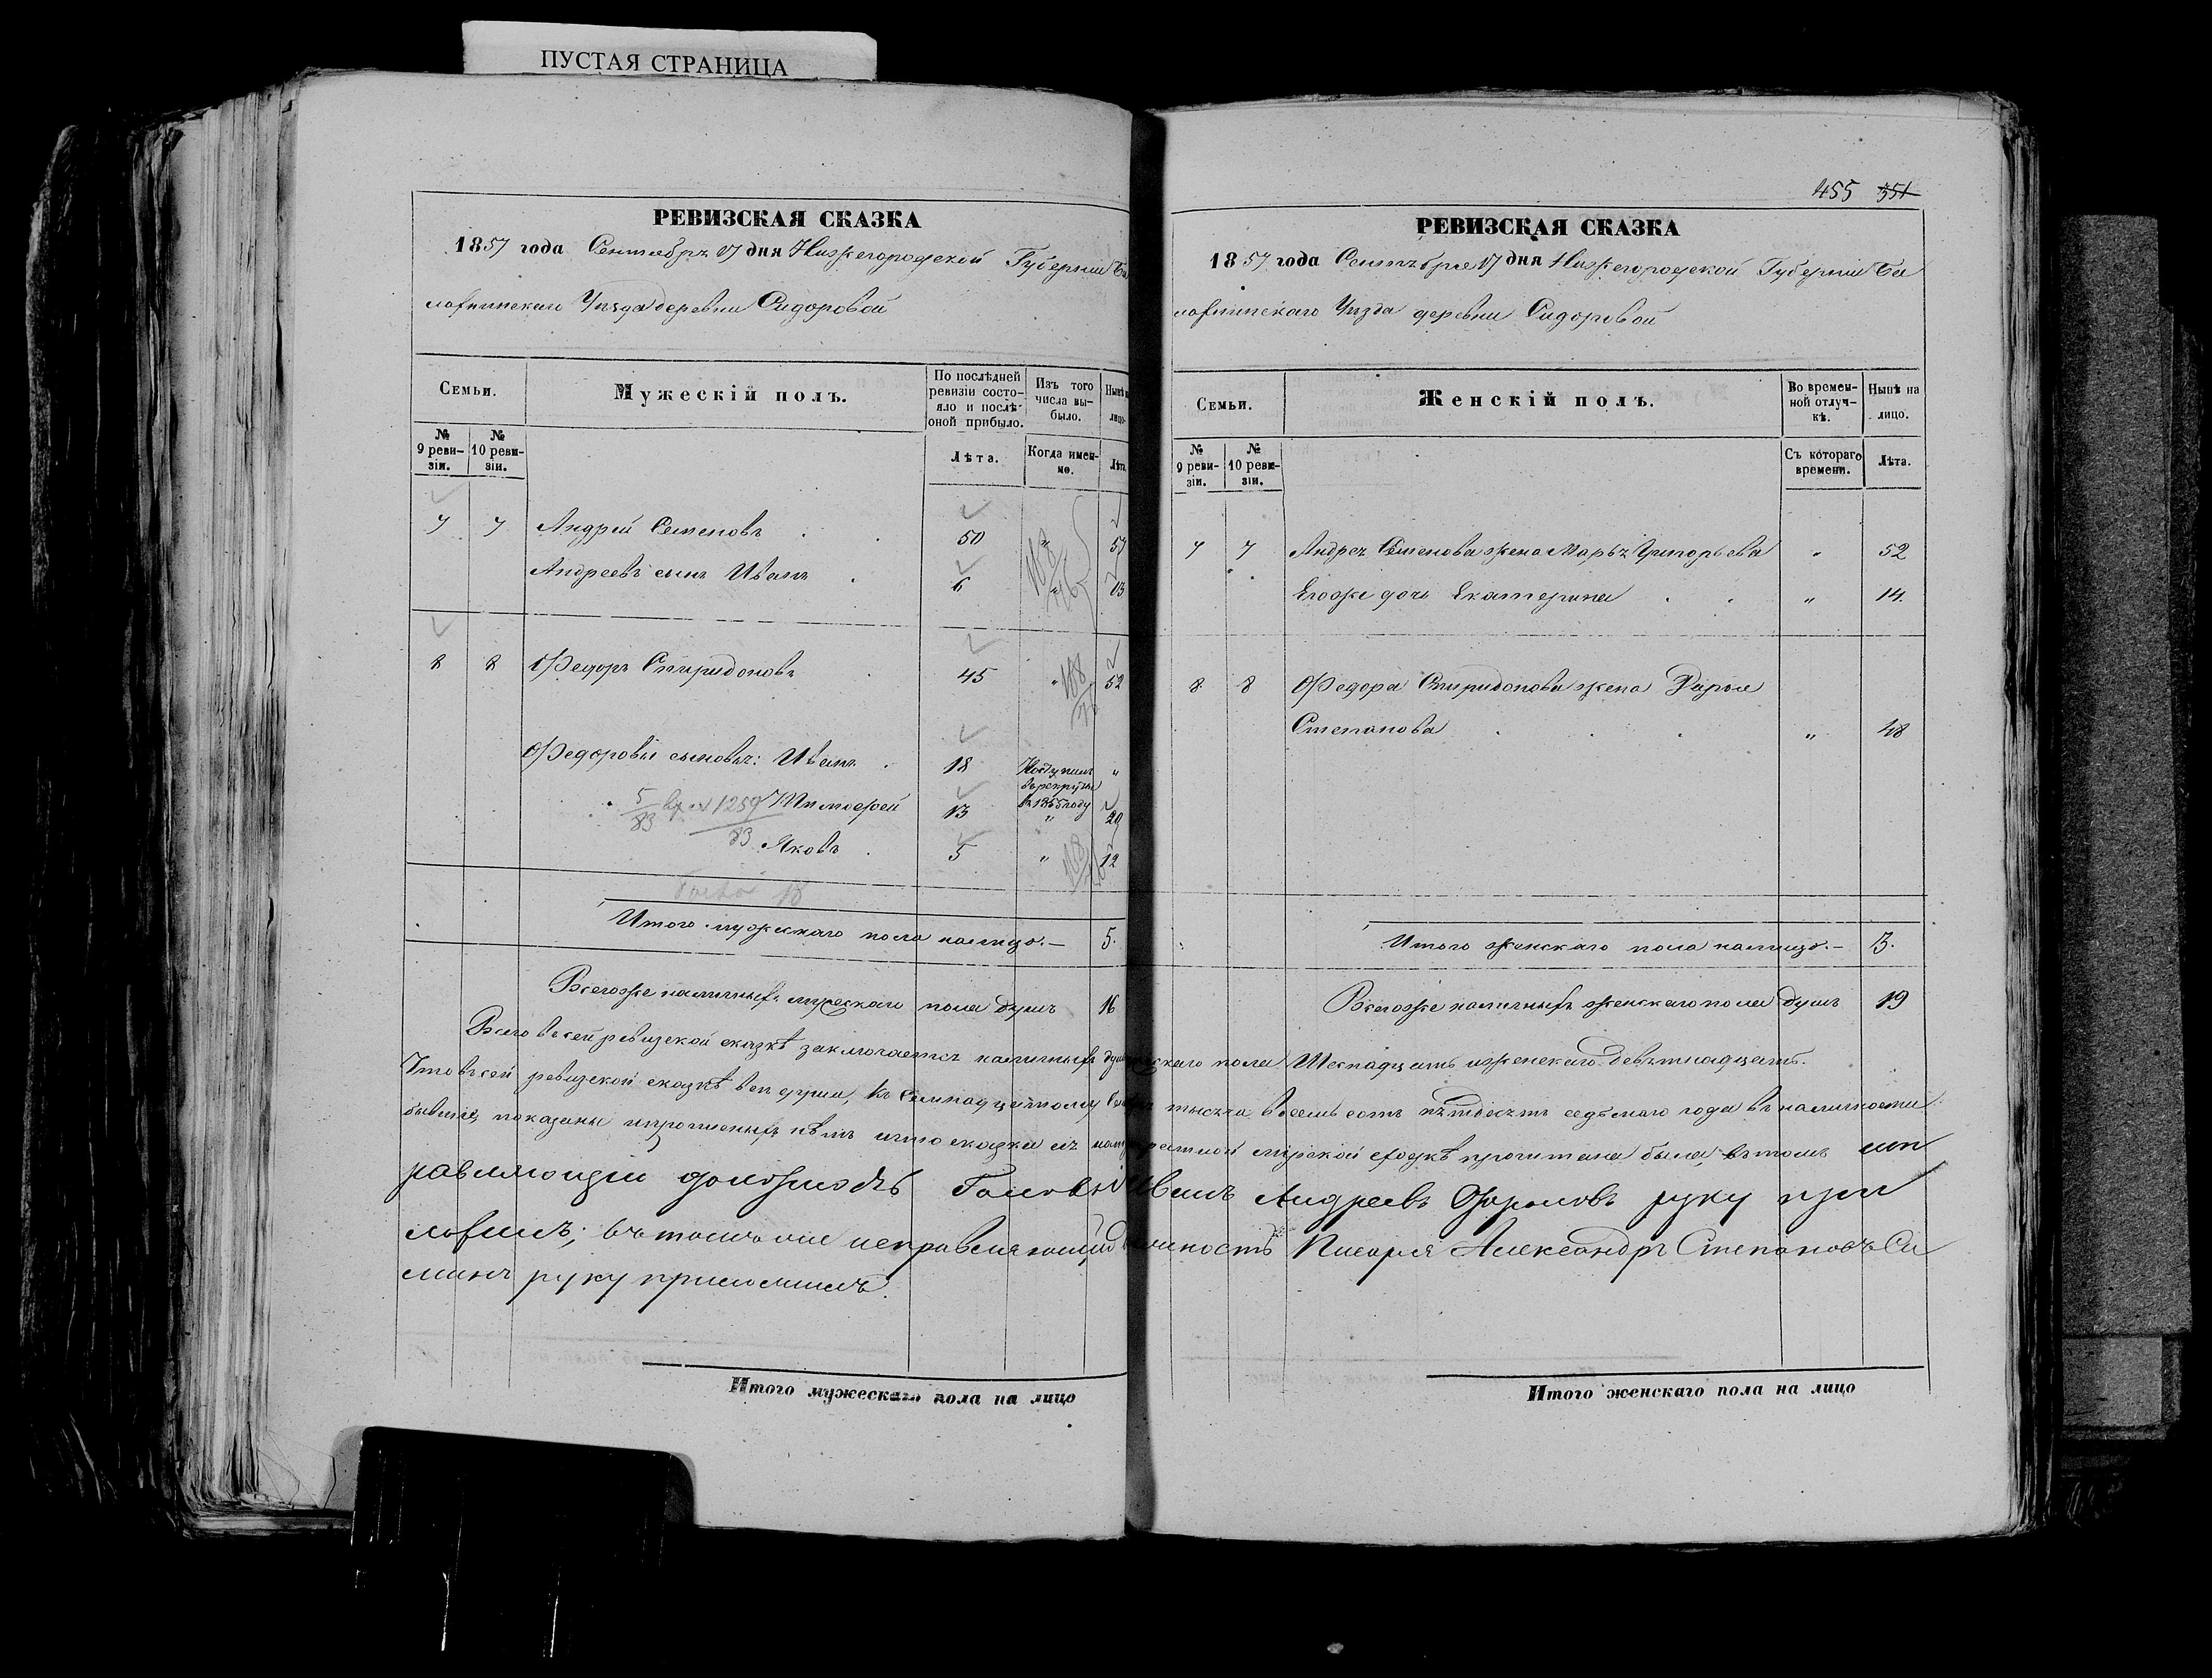 ПУСТАЯ СТРАНИЦА
РЕВИЗСКАЯ СКАЗКА
1857 года Сентября 17 дня Нижегородской Губернии Ба
лахнинскаго Уѣзда деревни Сидоровой
Семьи.
Мужескій полъ.
По послѣдней ревизіи состо-
яло и послѣ оной прибыло.
Изъ того числа вы-
было.
Нынѣ
лицо
№ 9 реви-
зіи.
№ 10 реви-
зіи.
Лѣта.
Когда имен-
но.
Лѣта
7 7 Андрей Семеновъ . 50 " 57
Андреевъ сынъ Иванъ . 6 " 13
8 8 Федоръ Спиридоновъ . 45 " 52
Федоровы сыновья: Иванъ . 18 Поступилъ "
в рекруты
въ 1855 году
Тимофей 13 " 20
Яковъ . 5 " 12
Итого мужескаго пола налицо.— 5.
Всегоже наличныхъ мужескаго пола душъ 16
455 351
РЕВИЗСКАЯ СКАЗКА
1857 года Сентября 17 дня Нижегородской Губерніи Ба
лахнинскаго Уѣзда деревни Сидоровой
Семьи.
Женскій полъ.
Во времен-
ной отлуч-
кѣ.
Нынѣ на
лицо.
№ 9 реви-
зіи.
№ 10 реви-
зіи.
Съ котораго
времени.
Лѣта.
7 7 Андрея Семенова жена Марья Григорьева " 52
Егоже дочь Екатерина . . " 14.
8 8 Федора Спиридонова жена Дарья
Степанова . . . " 48
Итого женскаго пола налицо.— 3.
Всегоже наличныхъ женскаго пола душъ 19
Всего въ сей ревизской сказкѣ заключается наличныхъ душъ скаго пола Шеснадцать и женскаго девятнадцать.
Что въ сей ревизской сказкѣ все души, къ семнадцатому тысяча восемь сотъ пятдесятъ седьмаго года въ наличности
бывшіе, показаны и пропущеныхъ нѣтъ и что сказка сія мірской сходкѣ прочитана была, въ томъ исп
равляющій должность Головы Иванъ Андреевъ Фроловъ руку при
ложилъ; въ томъ же исправляющій должность Писаря Александръ Степановъ Си
минъ руку приложилъ.
Итого мужескаго пола на лицо
Итого женскаго пола на лицо